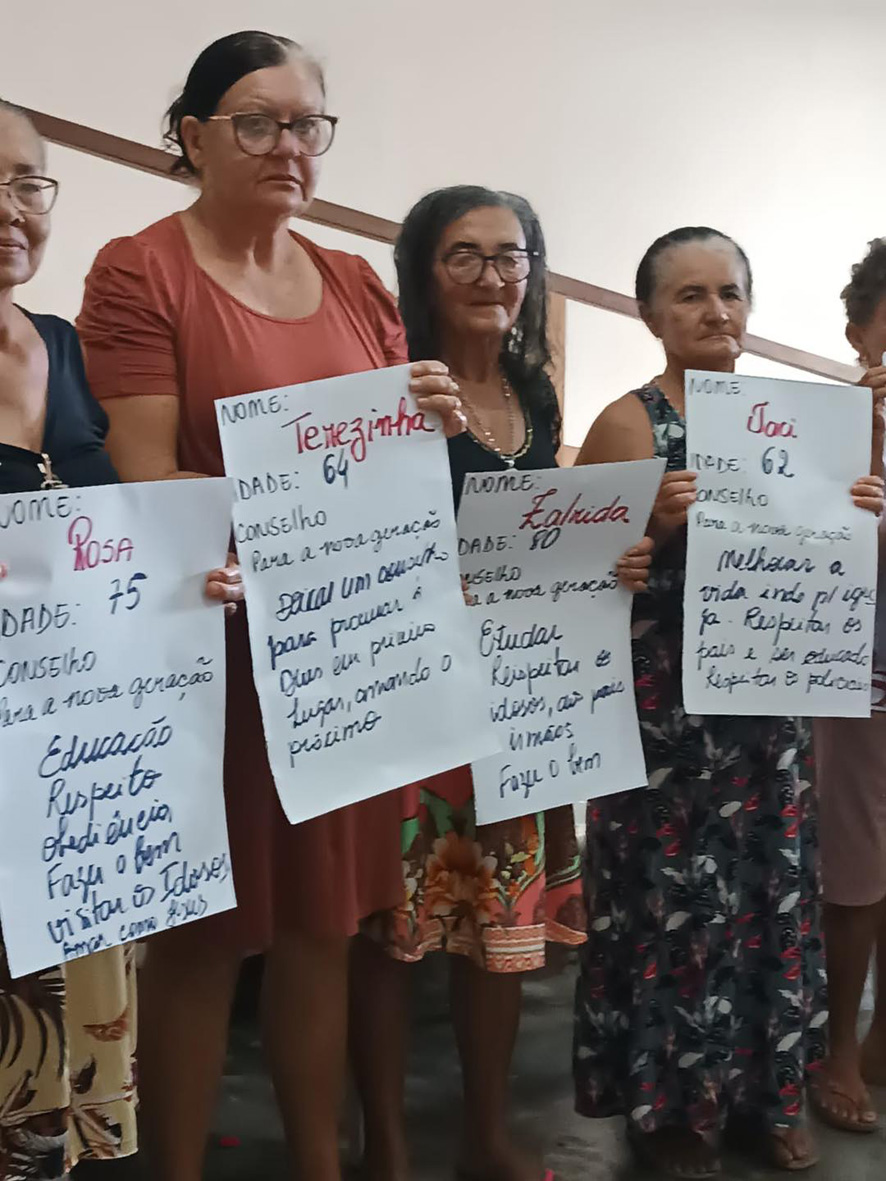 NOME:
ROSA
IDADE: 75
CONSELHO
Para a nova geração
Educação
Respeito
obediência
Fazer o bem
visitar os Idosos
Amar como Jesus
NOME:
Terezinha
IDADE: 64
CONSELHO
Para a nova geração
Deixar um conselho
para procurar a
Deus em primeiro
lugar, amando o
próximo
NOME:
IDADE: 80
CONSELHO
a a nova geração
Etudar
Respeitar os
idosos, aos pais
irmãos
Fazer o bem
NOME:
Joci
IDADE: 62
CONSELHO
Para a nova geração
Melhorar a
vida indo p/ igre
ja. Respeitar os
pais e ser educado
Respeitar os